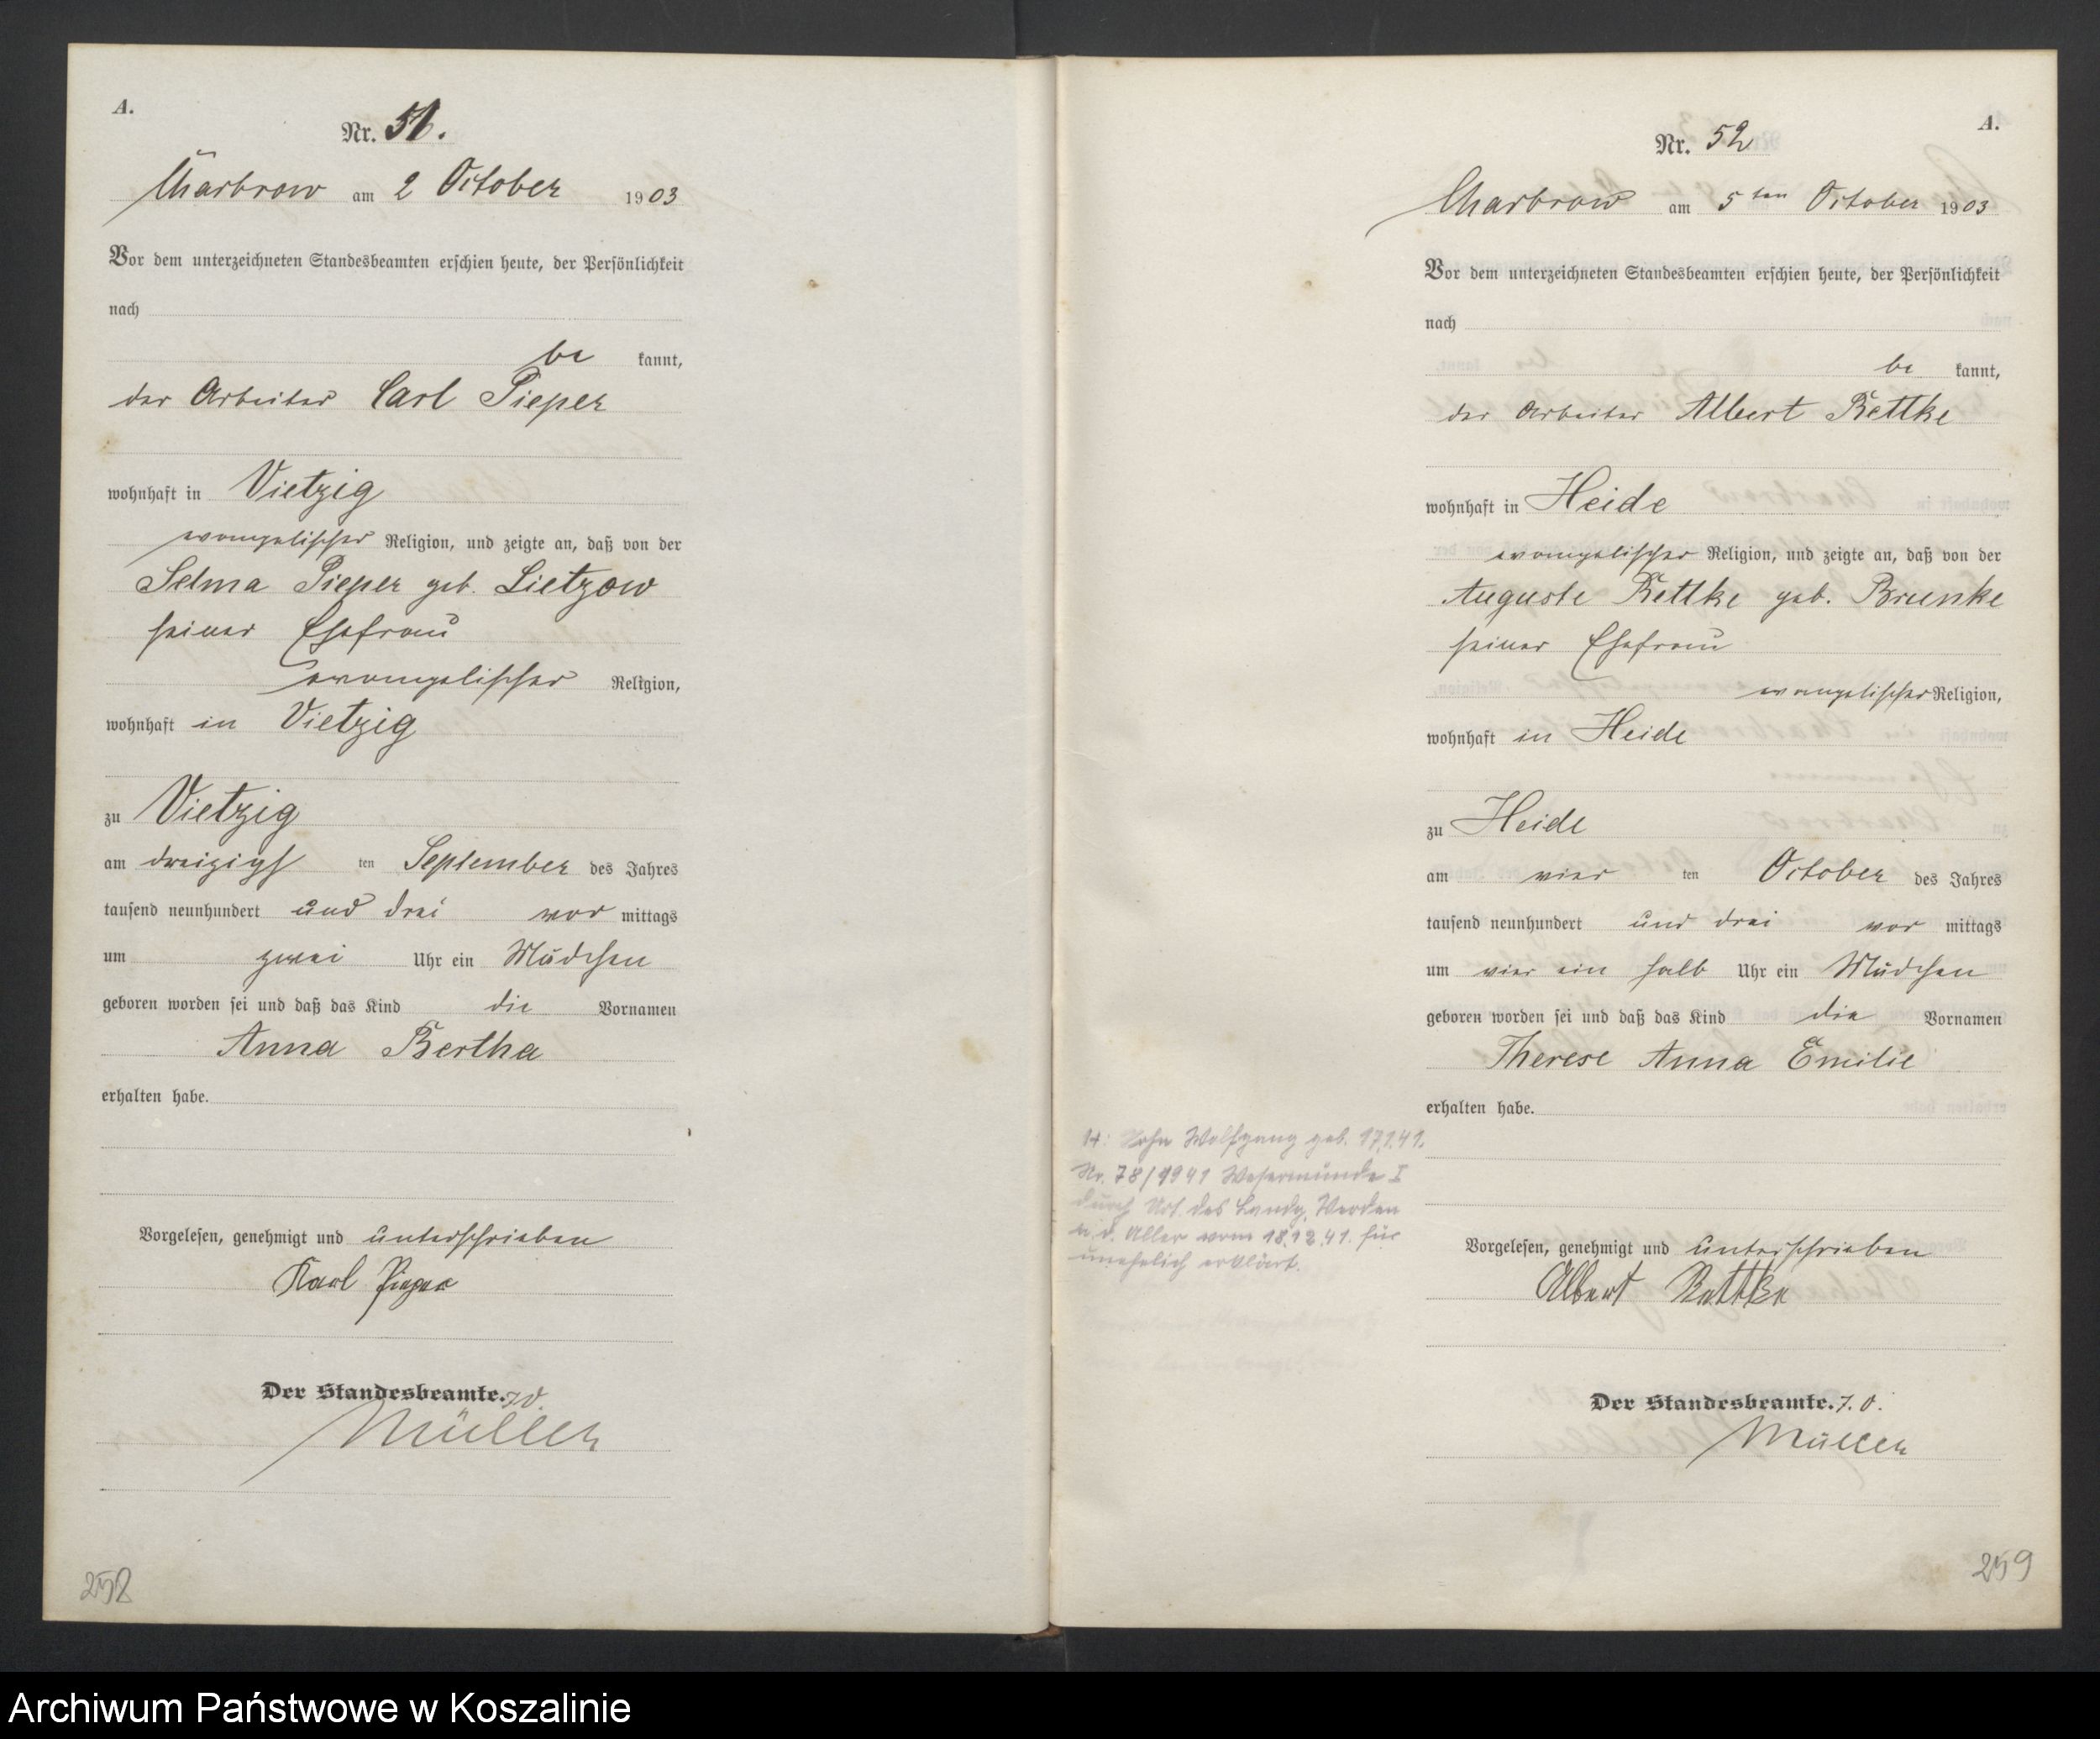 A.
Nr. 51.
Charbrow am 2 October 1903
Vor dem unterzeichneten Standesbeamten erschien heute, der Persönlichkeit
nach
be kannt,
der Arbeiter Carl Pieper
wohnhaft in Vietzig
evangelischer Religion, und zeigte an, daß von der
Selma Pieper geb. Lietzow
seiner Ehefrau
evangelischer Religion,
wohnhaft in Vietzig
zu Vietzig
am dreizigst ten September des Jahres
tausend neunhundert und drei vor mittags
um zwei Uhr ein Mädchen
geboren worden sei und daß das Kind die Vornamen
Anna Bertha
erhalten habe.
Vorgelesen, genehmigt und unterschrieben
Karl Pieper
Der Standesbeamte.
Müller
258
A.
Nr. 52
Charbrow am 5ten October 1903
Vor dem unterzeichneten Standesbeamten erschien heute, der Persönlichkeit
nach
be kannt,
der Arbeiter Albert Rettke
wohnhaft in Heide
evangelischer Religion, und zeigte an, daß von der
Auguste Rettke geb. Brunke
seiner Ehefrau
evangelischer Religion,
wohnhaft in Heide
zu Heide
am vier ten October des Jahres
tausend neunhundert und drei vor mittags
um vier ein halb Uhr ein Mädchen
geboren worden sei und daß das Kind die Vornamen
Therese Anna Emilie
erhalten habe.
Sohn Wolfgang geb. 17.1.41.
Nr. 78/1941 Wesermünde I
durch Urt. des Landg. Verden
a. d. Aller vom 18.12.41. für
unehelich erklärt.
Vorgelesen, genehmigt und unterschrieben
Albert Rettke
Der Standesbeamte.
Müller
259
Archiwum Państwowe w Koszalinie